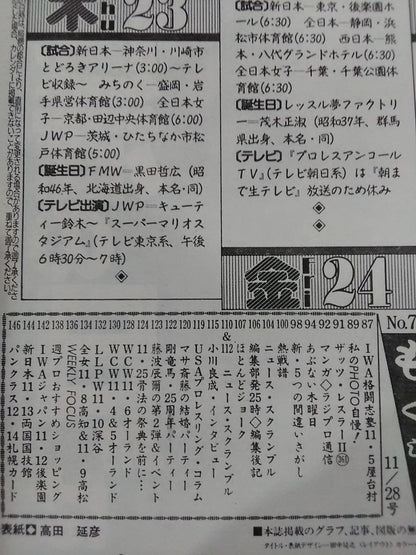 木 Thu 23
【試合】新日本―神奈川・川崎市
とどろきアリーナ(3:00)～テ
レビ収録～ みちのく―盛岡・岩
手県営体育館(3:00) 全日本女
子―京都・田辺中央体育館(6:00)
JWP―茨城・ひたちなか市松
戸体育館(5:00)
【誕生日】FMW=黒田哲広(昭
和46年、北海道出身、本名・同)
【テレビ出演】JWP=キューテ
ィー鈴木～『スーパーマリオス
タジアム』(テレビ東京系、午後
6時30分～7時)
新日本―東京・後楽園ホ
ール(6:30) 全日本―静岡・浜
松市体育館(6:30) 西日本―熊
本・八代グランドホテル(6:30)
全日本女子―千葉・千葉公園体
育館(6:30)
【誕生日】レッスル夢ファクトリ
ー=茂木正淑(昭和37年、群馬
県出身、本名・同)
【テレビ】『プロレスアンコール
TV』(テレビ朝日系)は『朝ま
で生テレビ』放送のため休み
金 Fri 24
No.7
もくじ
11/28号
87 IWA格闘志塾11・5屋台村
89 私のPHOTO自慢!
91 ザッツ・レスラーII
94 マンガ◇ラジプロ通信
92 あぶない木曜日
98 新・5つの間違いさがし
99 熱戦譜
100 ニュース・スクランブル
106 編集部発25時◇編集後記
107 ほとんどジョーク
110&112 ニュース・スクランブル
114 小川良成・インタビュー
119 USAプロレスリング・コラム
120 マサ斎藤の結婚パーティー
122 剛竜馬・25周年パーティー
123 藤波辰爾の第2弾&イベント
124 11・25骨法の祭典を前に…
128 WCW11・6オーランド
130 WCW11・4&5オーランド
132 LLPW11・10深谷
136 全女11・8高知&11・9高松
138 WEEKLY FOCUS
140 週プロおすすめショッピング
142 IWAジャパン11・12後楽園
144 新日本11・13両国国技館
146 パンクラス12・14札幌カード
表紙◆高田 延彦
■本誌掲載のグラフ、記事、図版の無